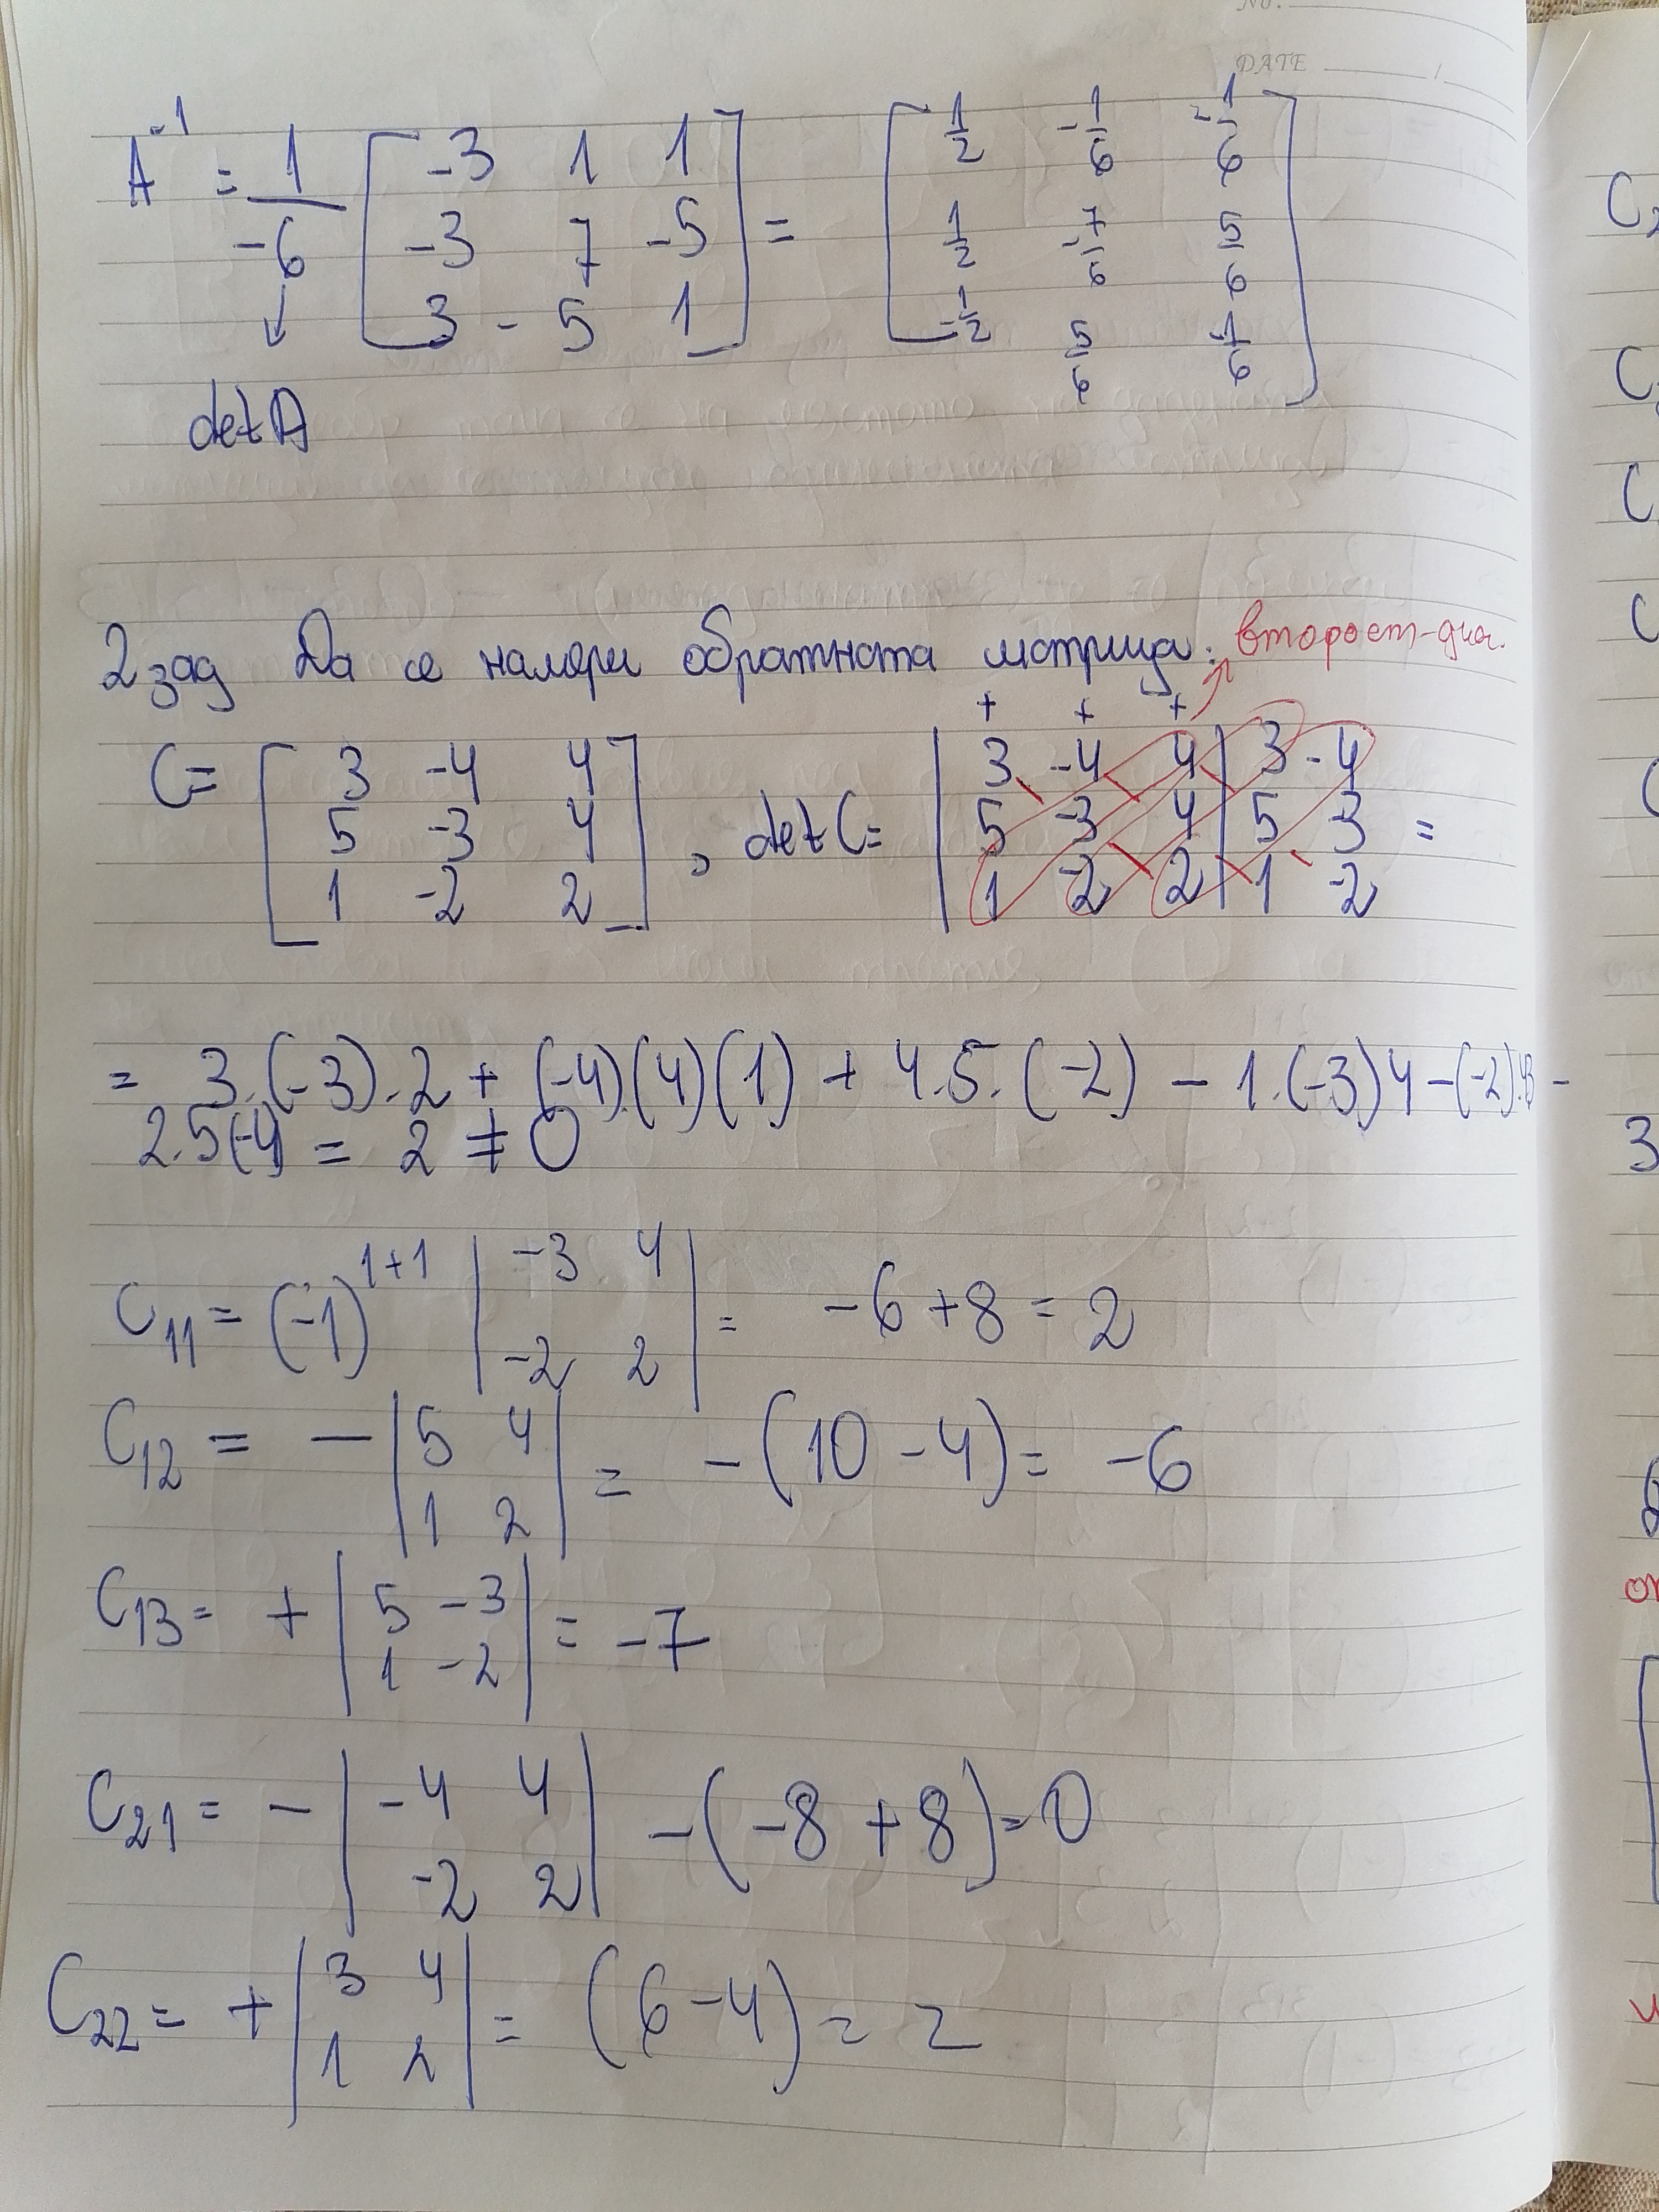 No.
DATE
A⁻¹ = 1/-6 [ -3 1 1 ; -3 7 -5 ; 3 -5 1 ] = [ 1/2 -1/6 -1/6 ; 1/2 -7/6 5/6 ; -1/2 5/6 -1/6 ]
↓
det A
2 зад Да се намери обратната матрица:
C = [ 3 -4 4 ; 5 -3 4 ; 1 -2 2 ] , det C = | 3 -4 4 | 3 -4 ; 5 -3 4 | 5 3 ; 1 -2 2 | 1 -2 =
+ + +
= 3.(-3).2 + (-4).(4)(1) + 4.5.(-2) - 1.(-3)4 - (-2).4.3 -
2.5(-4) = 2 ≠ 0
C₁₁ = (-1)¹⁺¹ | -3 4 ; -2 2 | = -6 + 8 = 2
C₁₂ = - | 5 4 ; 1 2 | = -(10 - 4) = -6
C₁₃ = + | 5 -3 ; 1 -2 | = -7
C₂₁ = - | -4 4 ; -2 2 | -(-8 + 8) = 0
C₂₂ = + | 3 4 ; 1 2 | = (6 - 4) = 2